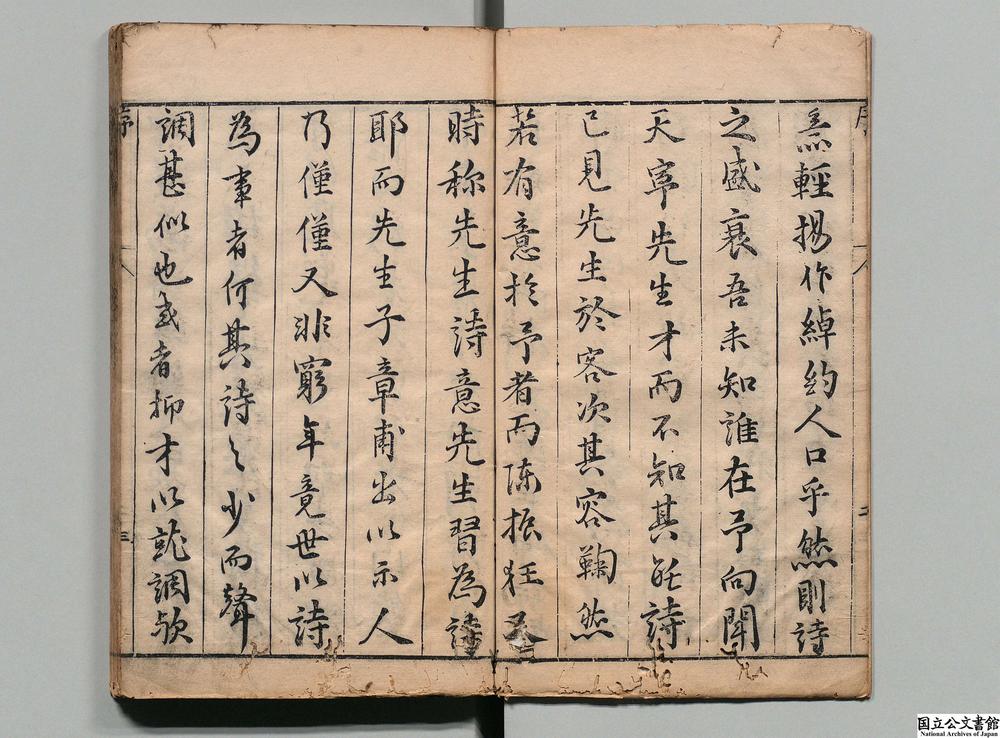 序
焉輕揚作綽約人口乎然則詩
之盛衰吾未知誰在予向聞
天寧先生才而不知其能詩
已見先生於客次其容鞠然
若有意於予者而陳振狂又
時称先生詩意先生習為詩
耶而先生子章甫出以示人
乃僅僅又非窮年竟世以詩
為事者何其詩之少而聲
調甚似也或者抑才以就調歟
序
二
三
国立公文書館
National Archives of Japan